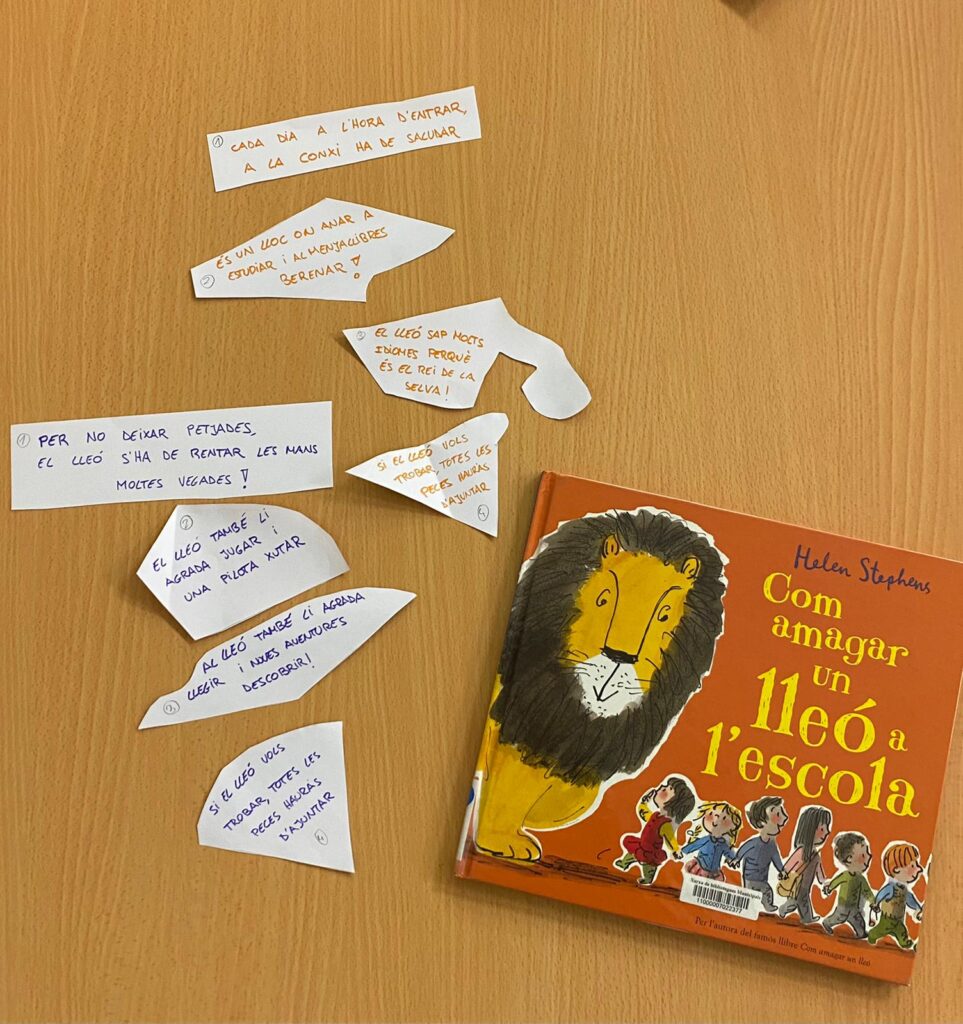 ① CADA DIA A L'HORA D'ENTRAR,
A LA CONXI HA DE SALUDAR
ÉS UN LLOC ON ANAR A
ESTUDIAR I AL MENJALLIBRES
② BERENAR!
③ EL LLEÓ SAP MOLTS
IDIOMES PERQUÈ
ÉS EL REI DE LA
SELVA!
SI EL LLEÓ VOLS
TROBAR, TOTES LES
PECES HAURAS
D'AJUNTAR
④
① PER NO DEIXAR PETJADES,
EL LLEÓ S'HA DE RENTAR LES MANS
MOLTES VEGADES!
②
EL LLEÓ TAMBÉ LI
AGRADA JUGAR I
UNA PILOTA XUTAR
AL LLEÓ TAMBÉ LI AGRADA
LLEGIR I NOVES AVENTURES
③ DESCOBRIR!
SI EL LLEÓ VOLS
TROBAR, TOTES LES
PECES HAURAS
D'AJUNTAR
④
Helen Stephens
Com
amagar
un
lleó a
l'escola
Xarxa de Biblioteques Municipals
11000007022377
Per l'autora del famós llibre Com amagar un lleó